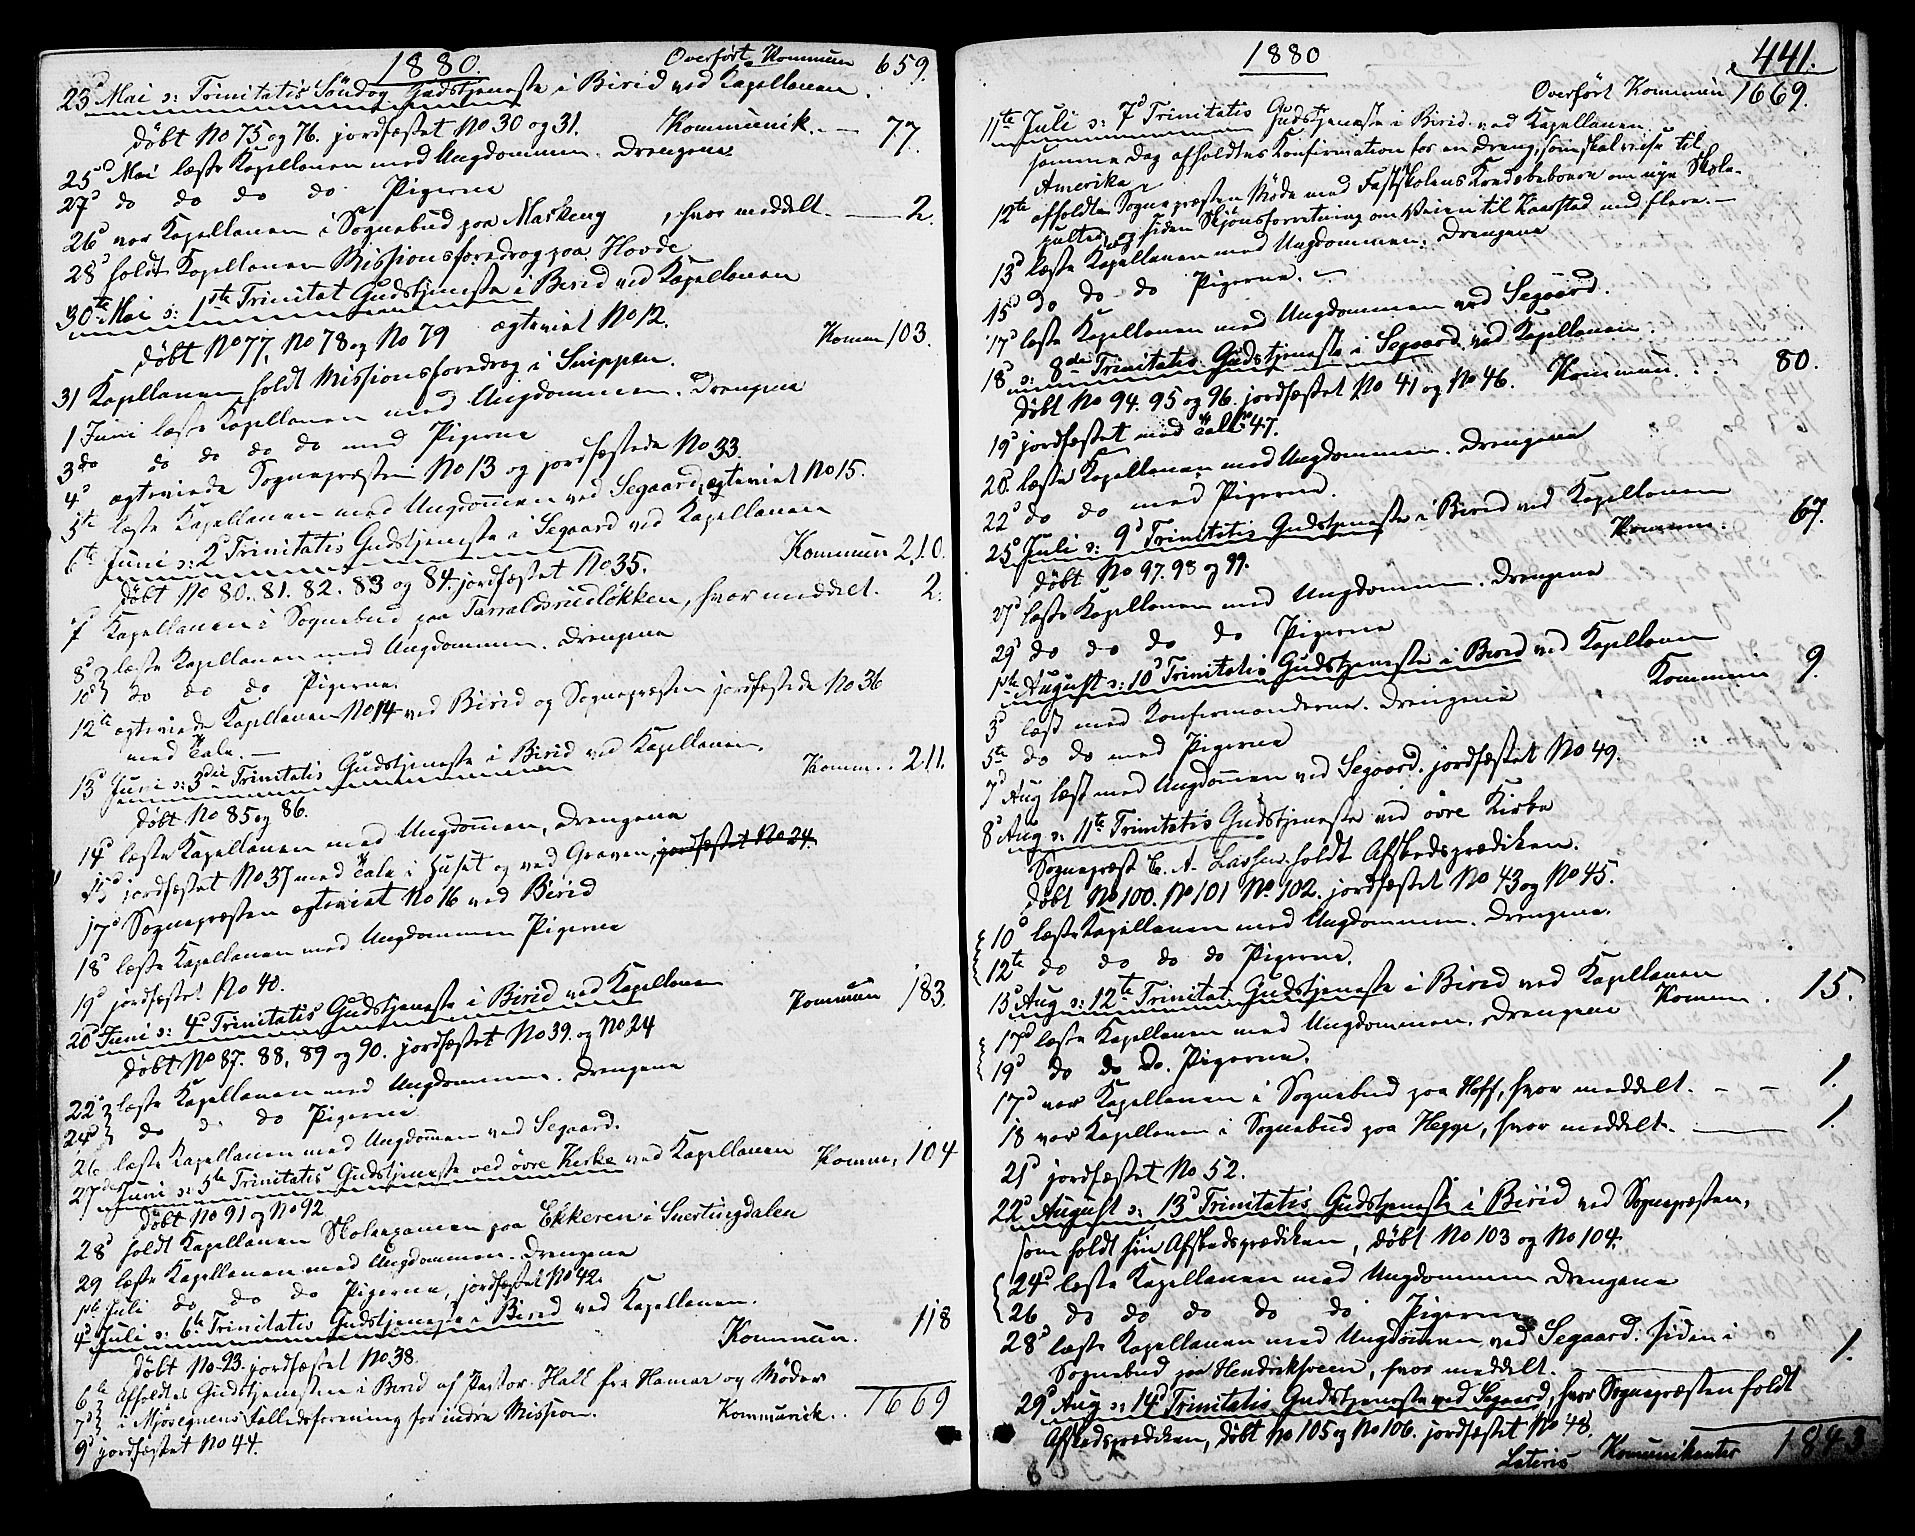 1880
Overført Kommun 659.
23d Mai ɔ: Trinitatis Søndag Gudstjeneste i Birid ved Kapellanen.
døbt No 75 og 76. jordfæstet No 30 og 31. Kommunik. — 77.
25d Mai læste Kapellanen med Ungdommen. Drengene
27d do do do do Pigerne
26d var Kapellanen i Sognebud paa Maskeng, hvor meddelt. — 2.
28d holdt Kapellanen Missionsforedrag paa Hovde
30te Mai ɔ: 1ste Trinitat. Gudstjeneste i Birid ved Kapellanen
døbt No 77, No 78 og No 79 ægteviet No 12. Komm 103.
31 Kapellanen holdt Missionsforedrag i Snippen.
1 Juni læste Kapellanen med Ungdommen. Drengene
3do do do do do med Pigerne
4d ægteviede Sognepræsten No 13 og jordfæstede No 33.
5te læste Kapellanen med Ungdommen ved Segaard, ægteviet No 15.
6te Juni ɔ: 2d Trinitatis Gudstjeneste i Segaard ved Kapellanen
døbt No 80. 81. 82. 83 og 84. jordfæstet No 35. Kommun 210.
7d Kapellanen i Sognebud paa Tarraldsrudløkken, hvor meddelt. 2.
8d læste Kapellanen med Ungdommen. Drengene
10d do do do Pigerne.
12te ægteviede Kapellanen No 14 ved Birid og Sognepræsten jordfæstede No 36
med Tale. —
13d Juni ɔ: 3die Trinitatis Gudstjeneste i Birid ved Kapellanen.
døbt No 85 og 86. Komm.. 211.
14d læste Kapellanen med Ungdommen, Drengene
15d jordfæstet No 37 med Tale i Huset og ved Graven, jordfæstet No 24.
17d Sognepræsten ægteviet No 16 ved Birid
18d læste Kapellanen med Ungdommen Pigerne
19d jordfæstet No 40.
20d Juni ɔ: 4d Trinitatis Gudstjeneste i Birid ved Kapellanen
døbt No 87. 88, 89 og 90. jordfæstet No 39. og No 24 Kommun 183.
22d læste Kapellanen med Ungdommen. Drengene
24d do do do Pigerne
26 læste Kapellanen med Ungdommen ved Segaard.
27de Juni ɔ: 5te Trinitatis Gudstjeneste ved øvre Kirke ved Kapellanen Komm. 104
døbt No 91 og No 92
28d holdt Kapellanen Skoleexamen paa Ekkeren i Snertingdalen
29 læste Kapellanen med Ungdommen. Drengene
1ste Juli do do do Pigerne, jordfæstet No 42.
4d Juli ɔ: 6te Trinitatis Gudstjeneste i Birid ved Kapellanen.
døbt No 93. jordfæstet No 38. Kommun. 118
6te Afholdtes Gudstjenesten i Birid af Pastor Hall fra Hamar og Møder
7d i Mjøsegnens Fælledsforening for indre Mission. Kommunik.. 1669
9d jordfæstet No 44.
1880
441.
Overført Kommun 1669.
11te Juli ɔ: 7d Trinitatis Gudstjeneste i Birid ved Kapellanen.
samme Dag afholdtes Konfirmation for en Dreng, som skal reise til
Amerika
12te afholdte Sognepræsten Møde med Fastskolens Kredsbeboere om nye Skole-
pulte, og siden Skjønsforretning om Veien til Kaarstad med flere. —
13d læste Kapellanen med Ungdommen. Drengene
15d do do do Pigerne. —
17d læste Kapellanen med Ungdommen ved Segaard.
18d ɔ: 8de Trinitatis Gudstjeneste i Segaard ved Kapellanen.
døbt No 94. 95 og 96. jordfæstet No 41 og No 46. Kommun... 80.
19d jordfæstet med Tale No 47.
20. læste Kapellanen med Ungdommen. Drengene
22d do do med Pigerne.
25d Juli ɔ: 9d Trinitatis Gudstjeneste i Birid ved Kapellanen
døbt No 97. 98 og 99. Komm. 67.
27d læste Kapellanen med Ungdommen. Drengene
29d do do do do Pigerne
1ste August ɔ: 10d Trinitatis Gudstjeneste i Birid ved Kapellanen
Kommun 9.
3d læst med Konfirmanderne. Drengene
5te do do med Pigerne
7d Aug læst med Ungdommen ved Segaard. jordfæstet No 49.
8d Aug ɔ: 11te Trinitatis Gudstjeneste ved øvre Kirke
Sognepræst E. A. Lassen holdt Afskedsprædiken.
døbt No 100. No 101 No. 102. jordfæstet No 43 og No 45.
10d læste Kapellanen med Ungdommen. Drengene.
12te do do do do Pigerne.
15d Aug ɔ: 12te Trinitat. Gudstjeneste i Birid ved Kapellanen
Komm. 15.
17d læste Kapellanen med Ungdommen. Drengene
19d do do do. Pigerne.
17d var Kapellanen i Sognebud paa Hoff, hvor meddelt. — — 1.
18 var Kapellanen i Sognebud paa Hegge, hvor meddelt. — 1.
21d jordfæstet No 52.
22d August ɔ: 13d Trinitatis Gudstjeneste i Birid ved Sognepræsten,
som holdt sin Afskedsprædiken, døbt No 103 og No 104.
24d læste Kapellanen med Ungdommen Drengene
26 do do do do do Pigerne
28d læste Kapellanen med Ungdommen ved Segaard. siden i
Sognebud paa Hendriksveen, hvor meddelt. — 1.
29d Aug ɔ: 14d Trinitatis Gudstjeneste ved Segaard, hvor Sognepræsten holdt
Afskedsprædiken, døbt No 105 og No 106. jordfæstet No 48.
Lateris Kommunikanter 1843